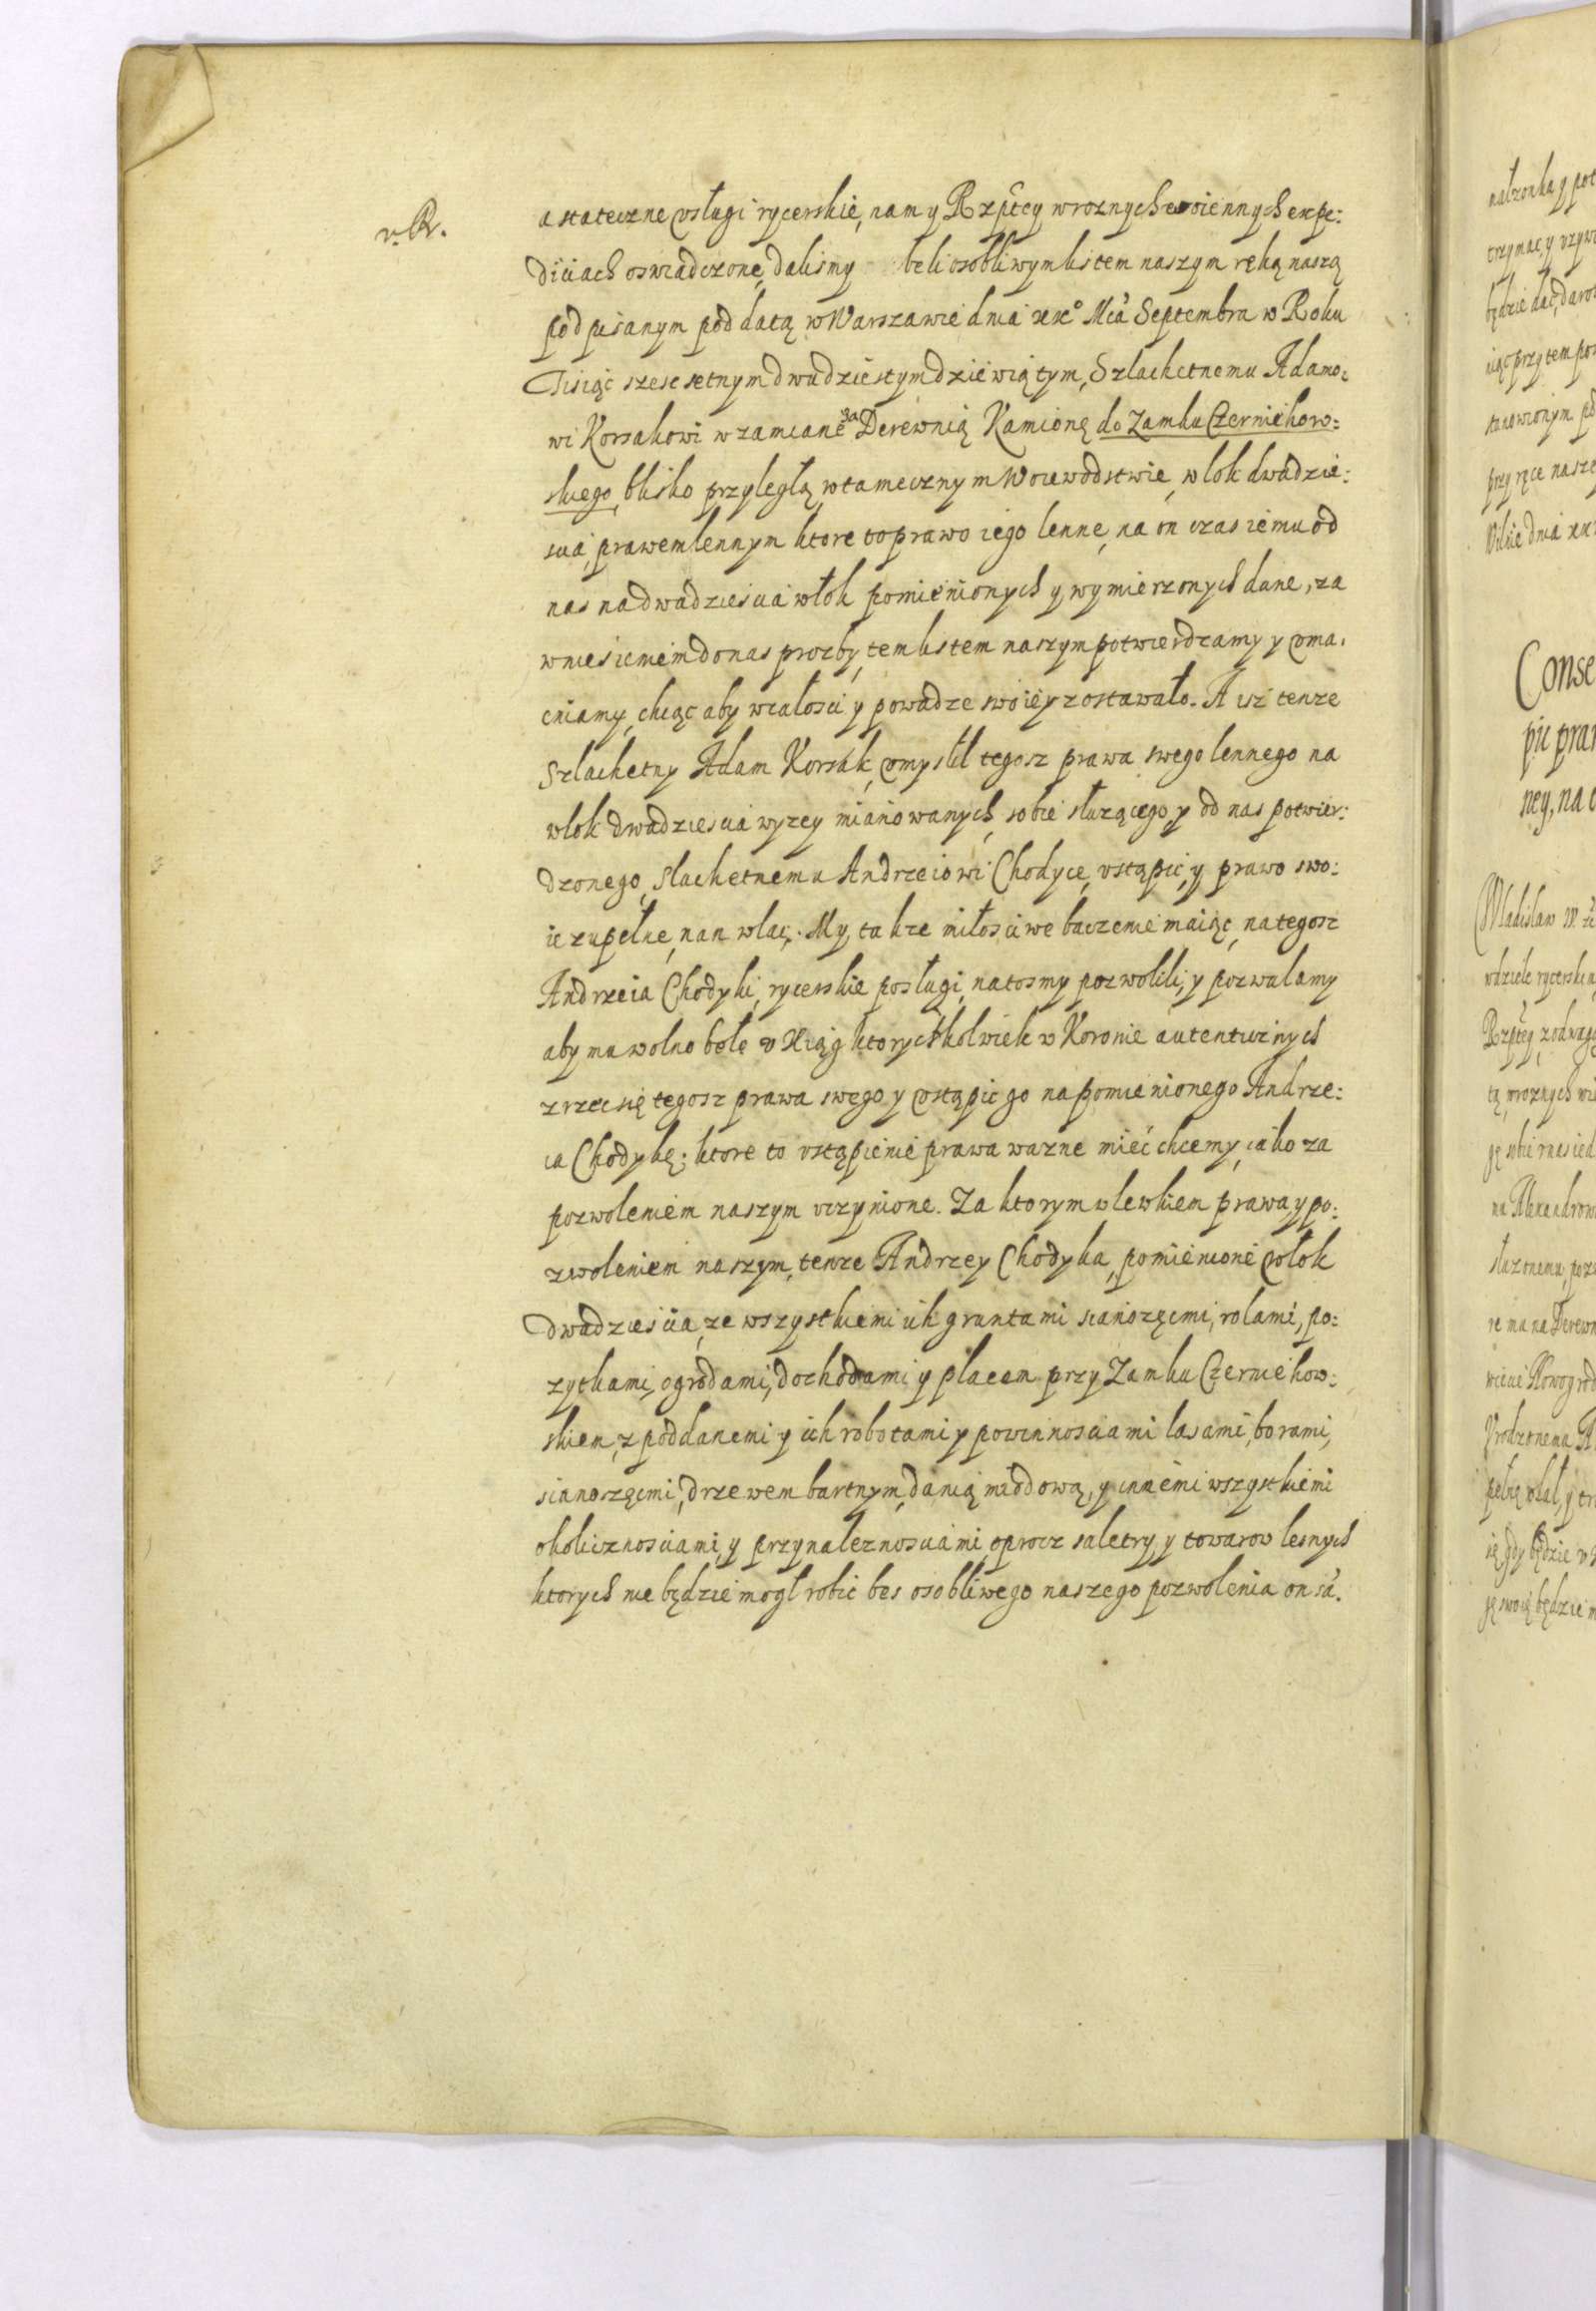 v. R.
a stateczne vsługi rycerskie, nam y Rzpltey w roznych woiennych expe:
diciach oswiadczone, dalismy beli osobliwym listem naszym ręką naszą
podpisanym pod datą w Warszawie dnia xx° Mca Septembra w Roku
Tisiąc szesc setnym dwudziestym dziewiątym, Szlachetnemu Adamo:
wi Korsakowi w zamiane za Derewnią Kamionę do Zamku Czerniehow:
skiego, blisko przyległą w tamecznym Woiewodstwie, wlok dwadzie:
scia, prawem lennym ktore to prawo iego lenne, na on czas iemu od
nas na dwadziescia włok pomienionych y wymierzonych dane, za
wniesieniem do nas prozby, tem listem naszym potwierdzamy y vma:
cniamy, chcąc aby w całosci y powadze swoiey zostawało. A isz tenze
Szlachetny Adam Korsak, vmyslil tegosz prawa swego lennego na
wlok dwadziescia wyzey mianowanych, sobie służącego y od nas potwier:
dzonego, Slachetnemu Andrzeiowi Chodyce, vstąpic, y prawo swo:
ie zupełne, nan wlac. My, takze miłosciwe baczenie maiąc, na tegosz
Andrzeia Chodyki, rycerskie posługi, na tosmy pozwolili, y pozwalamy
aby mu wolno było v Xiąg ktorychkolwiek w Koronie autenticznych
zrzec się tegosz prawa swego y vstąpic go na pomienionego Andrze:
ia Chodykę; ktore to vstąpienie prawa wazne mieć chcemy, iako za
pozwoleniem naszym vczynione. Za ktorym wlewkiem prawa, y po:
zwoleniem naszym, tenze Andrzey Chodyka, pomienione włok
dwadziescia, ze wszystkiemi ich gruntami sianozęcmi, rolami, po:
zytkami, ogrodami, dochodami y placem przy Zamku Czerniehow:
skiem, z poddanemi y ich robotami y powinnosciami lasami, borami,
sianoszęcmi, drzewem bartnym, danią miodową, y innemi wszystkiemi
okolicznosciami, y przynaleznosciami, oprocz saletry, y towarow lesnych
ktorych nie będzie mogl robic bes osobliwego naszego pozwolenia on sa.
Conse